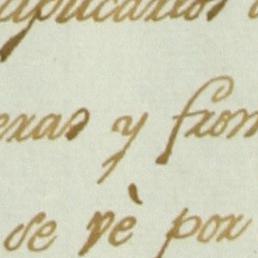 aplicarlos
exas y fron
se vè por